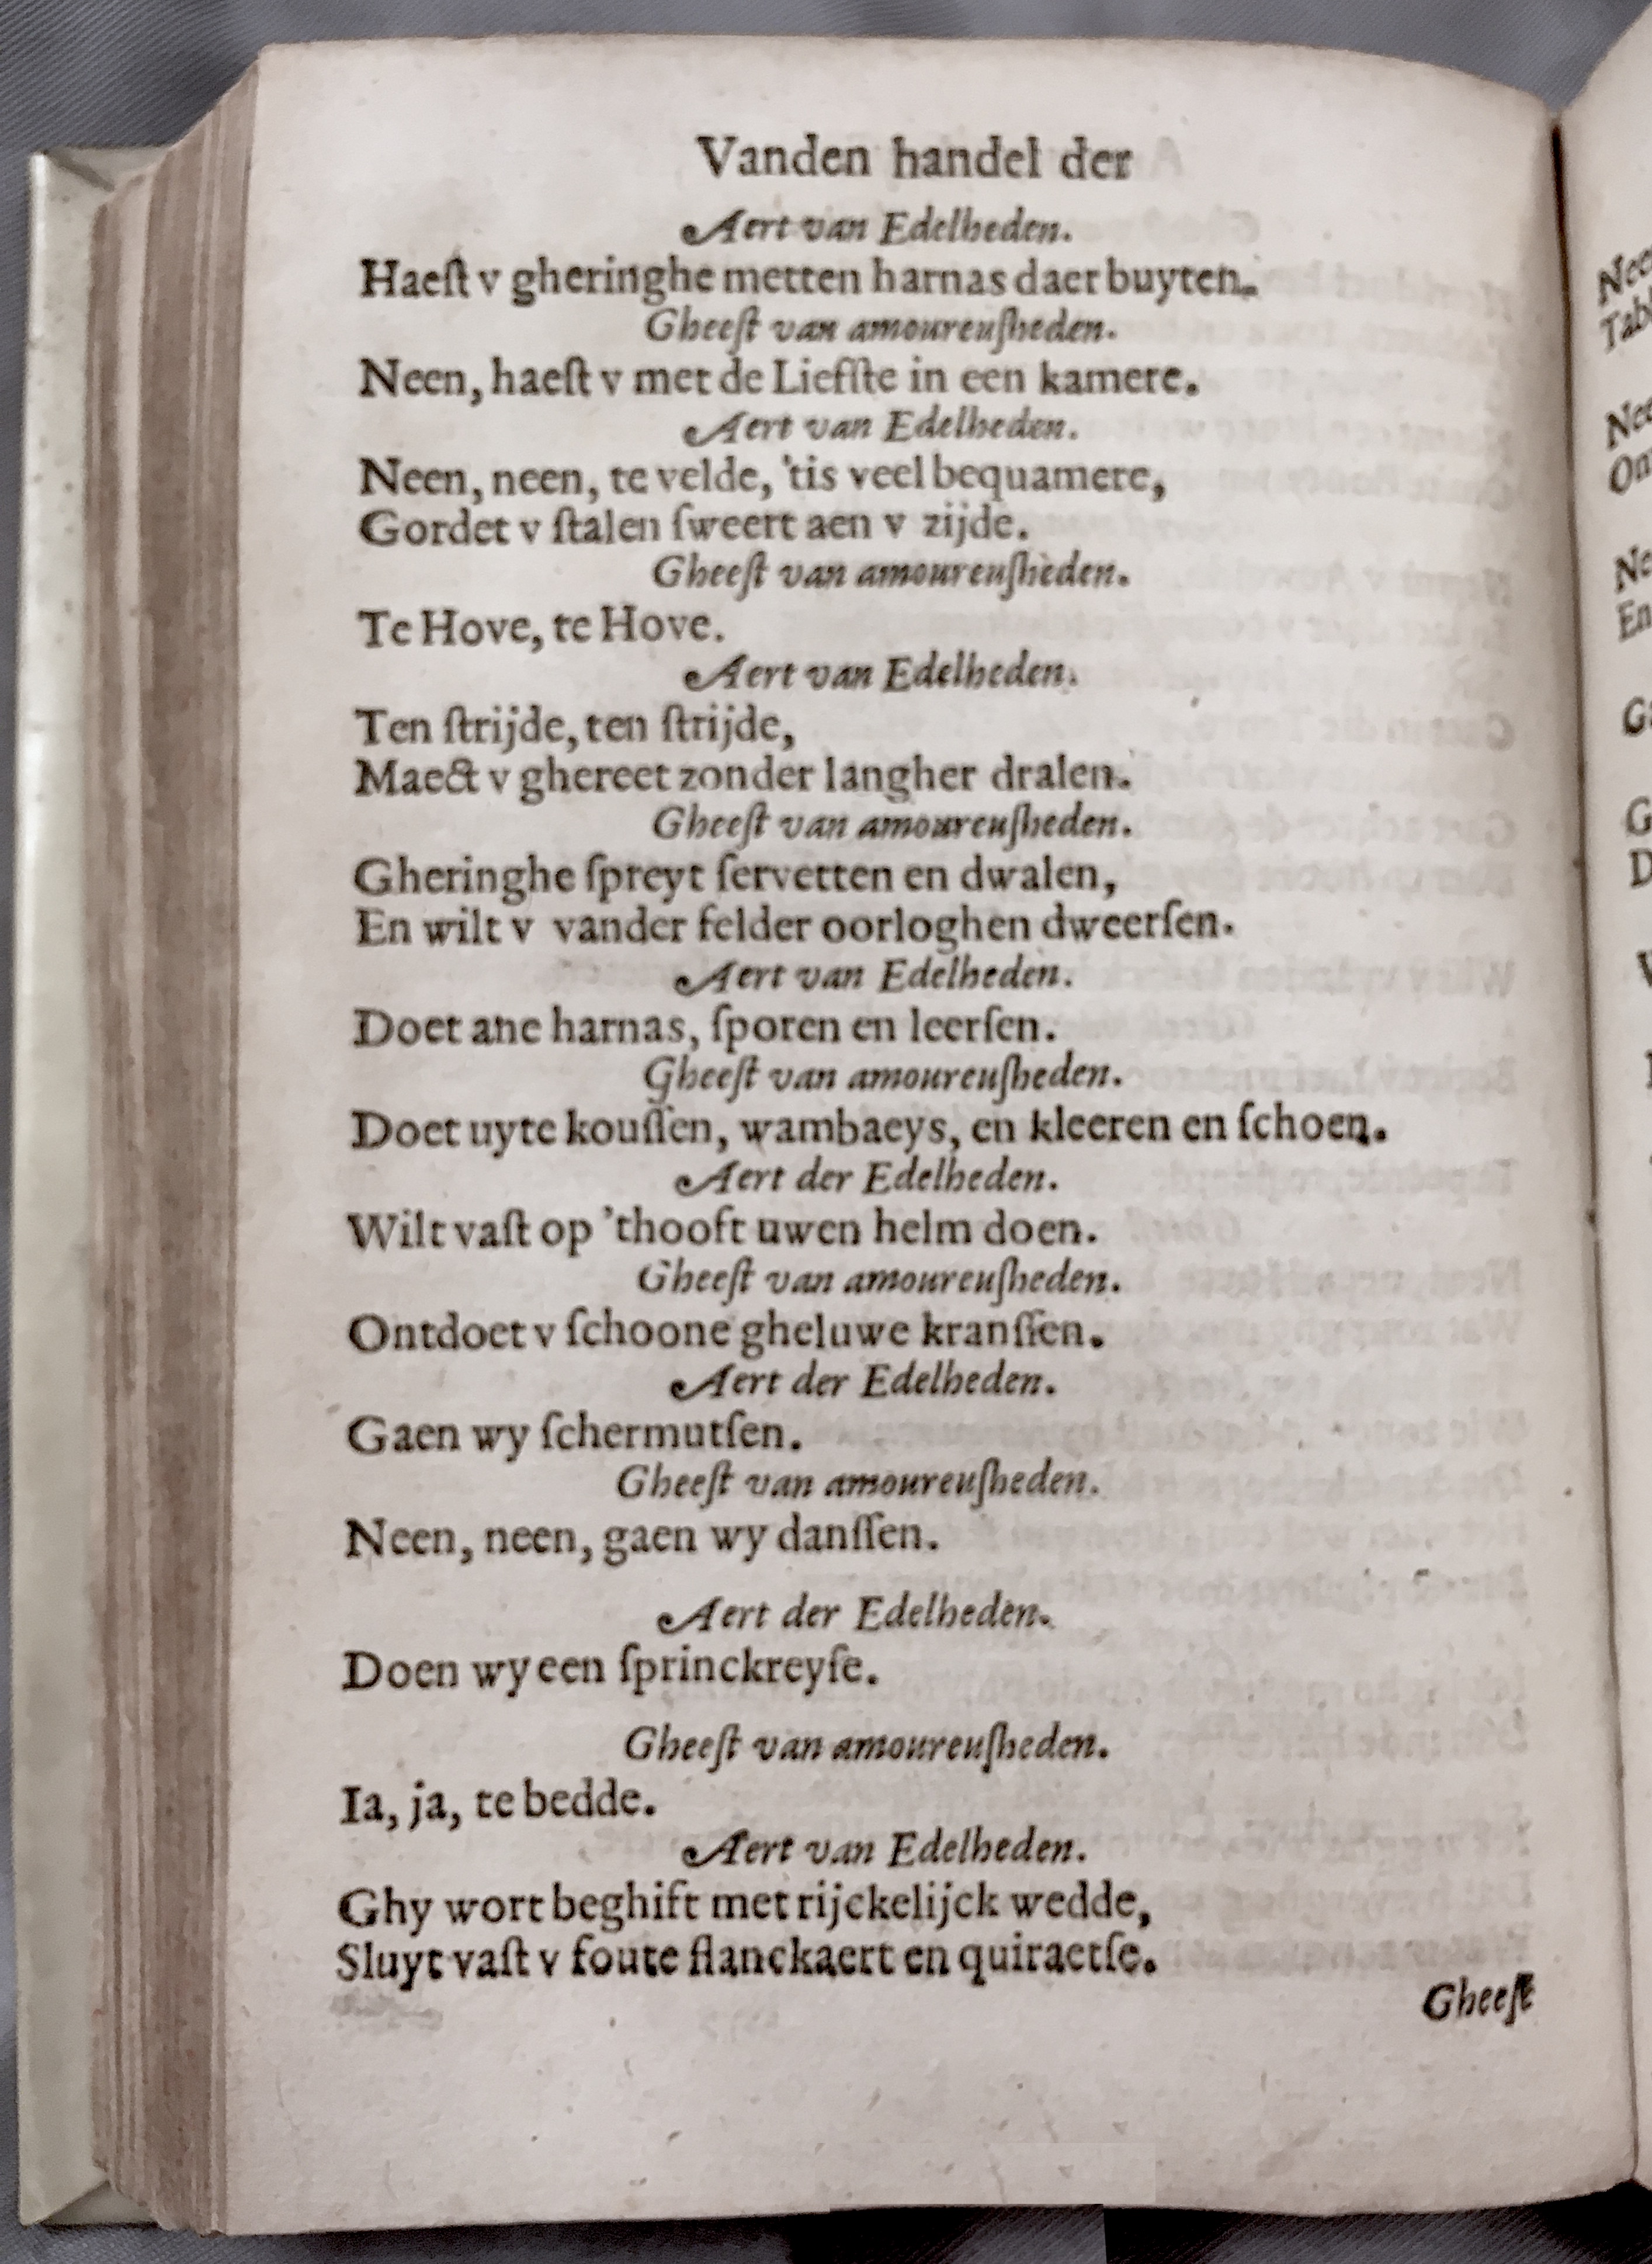 Vanden handel der
Aert van Edelheden.
Haeſt v gheringhe metten harnas daer buyten.
Gheeſt van amoureuſheden.
Neen, haeſt v met de Liefſte in een kamere.
Aert van Edelheden.
Neen, neen, te velde, 'tis veel bequamere,
Gordet v ſtalen ſweert aen v zijde.
Gheeſt van amoureuſheden.
Te Hove, te Hove.
Aert van Edelheden.
Ten ſtrijde, ten ſtrijde,
Maect v ghereet zonder langher dralen.
Gheeſt van amoureuſheden.
Gheringhe ſpreyt ſervetten en dwalen,
En wilt v vander felder oorloghen dweerſen.
Aert van Edelheden.
Doet ane harnas, ſporen en leerſen.
Gheeſt van amoureuſheden.
Doet uyte kouſſen, wambaeys, en kleeren en ſchoen.
Aert der Edelheden.
Wilt vaſt op 'thooft uwen helm doen.
Gheeſt van amoureuſheden.
Ontdoet v ſchoone gheluwe kranſſen.
Aert der Edelheden.
Gaen wy ſchermutſen.
Gheeſt van amoureuſheden.
Neen, neen, gaen wy danſſen.
Aert der Edelheden.
Doen wy een ſprinckreyſe.
Gheeſt van amoureuſheden.
Ia, ja, te bedde.
Aert van Edelheden.
Ghy wort beghift met rijckelijck wedde,
Sluyt vaſt v foute flanckaert en quiraetſe.
Gheeſt